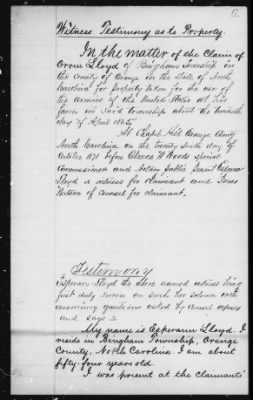 Witness Testimony as to Property.
In the matter of the Claim of
Orren Lloyd of Bingham Township in
the County of Orange in the State of North
Carolina for property taken for the use of
the armies of the United States at his
farm in said Township about the
day of April 1865
At Chapel Hill Orange County
North Carolina on the twenty sixth day of
October 1871 before Clovis W Woods special
Commissioner and Notary public
Lloyd a witness for claimant and Jones
Watson of Counsel for claimant.
Testimony
Lloyd the above named witness being
first duly sworn on such her solemn oath
answering questions asked by
and says
My name is Esperann Lloyd. I
reside in Bingham Township, Orange
County, North Carolina. I am about
fifty-four years old.
I was present at the claimants'